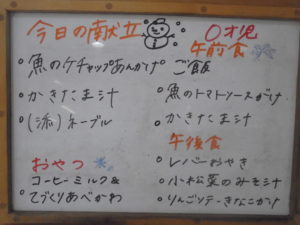 今日の献立
・魚のケチャップあんかけ
・かきたま汁
・(添)ネーブル
おやつ
コーヒーミルク&
・てづくりあべかわ
0才児
午前食
ご飯
・魚のトマトソースがけ
・かきたま汁
午後食
・レバーおやき
・小松菜のみそ汁
・りんごソテーきなこかけ